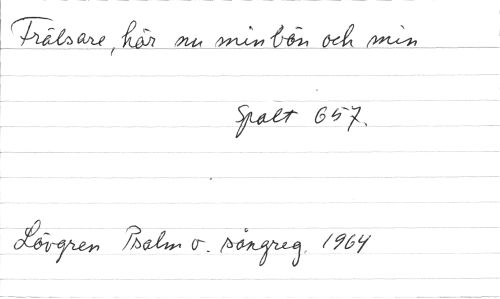 Frälsare, hör nu min bön och min
Spalt 657.
Lövgren Psalm o. sångreg. 1964